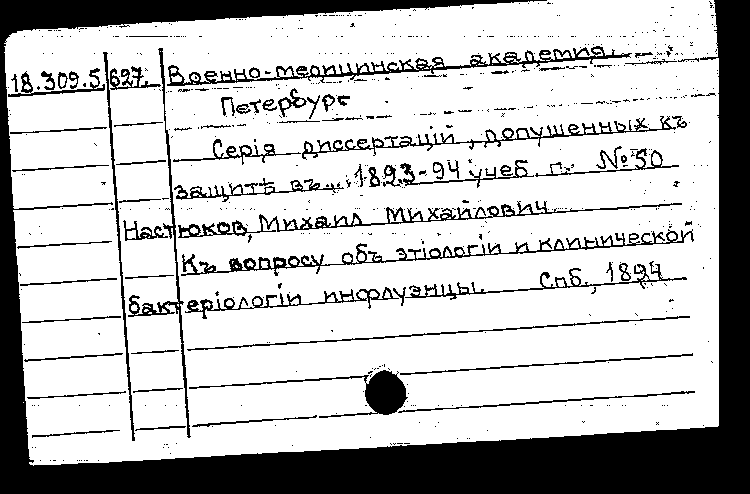 18.309.5 627. Военно-медицинская академия.
Петербург
Серія диссертацій, допущенных къ
защитѣ въ... 1893-94 учеб. г. №50
Настюков, Михаил Михайлович
Къ вопросу объ этіологіи и клинической
бактеріологіи инфлуэнцы. Спб., 1894